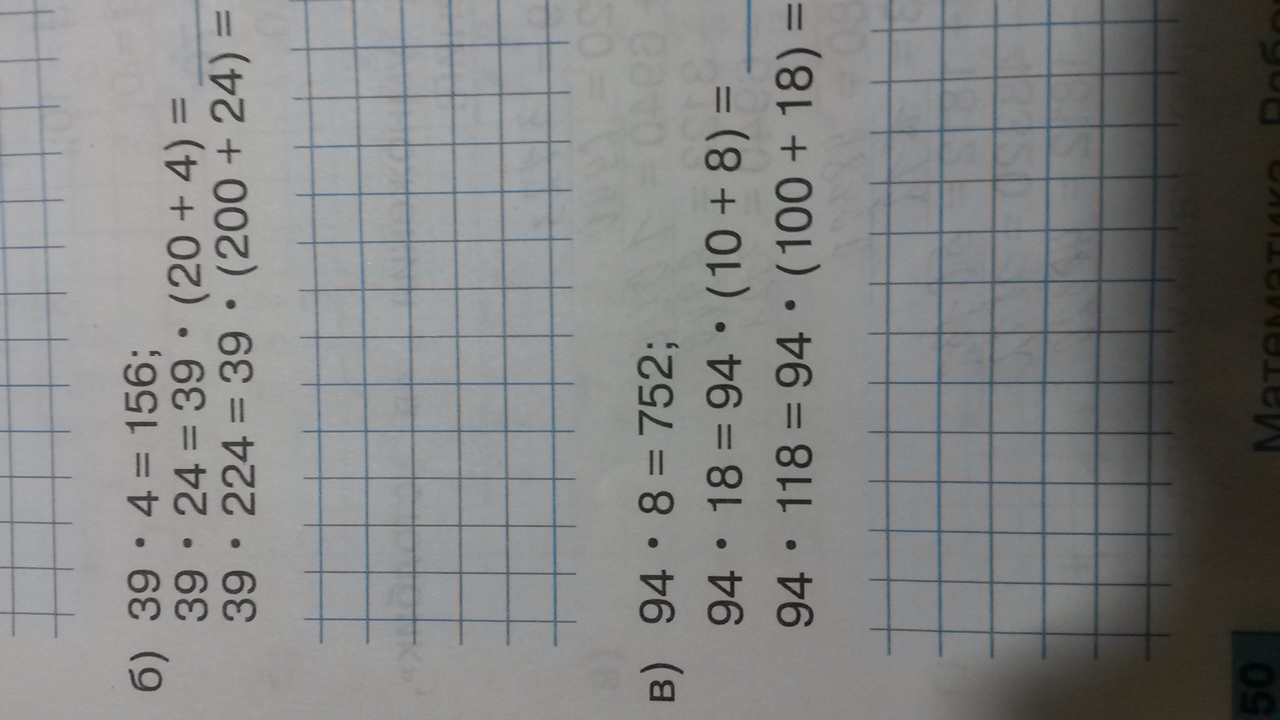 б) 39 · 4 = 156;
39 · 24 = 39 · (20 + 4) =
39 · 224 = 39 · (200 + 24) =
в) 94 · 8 = 752;
94 · 18 = 94 · (10 + 8) =
94 · 118 = 94 · (100 + 18) =
50 Математика